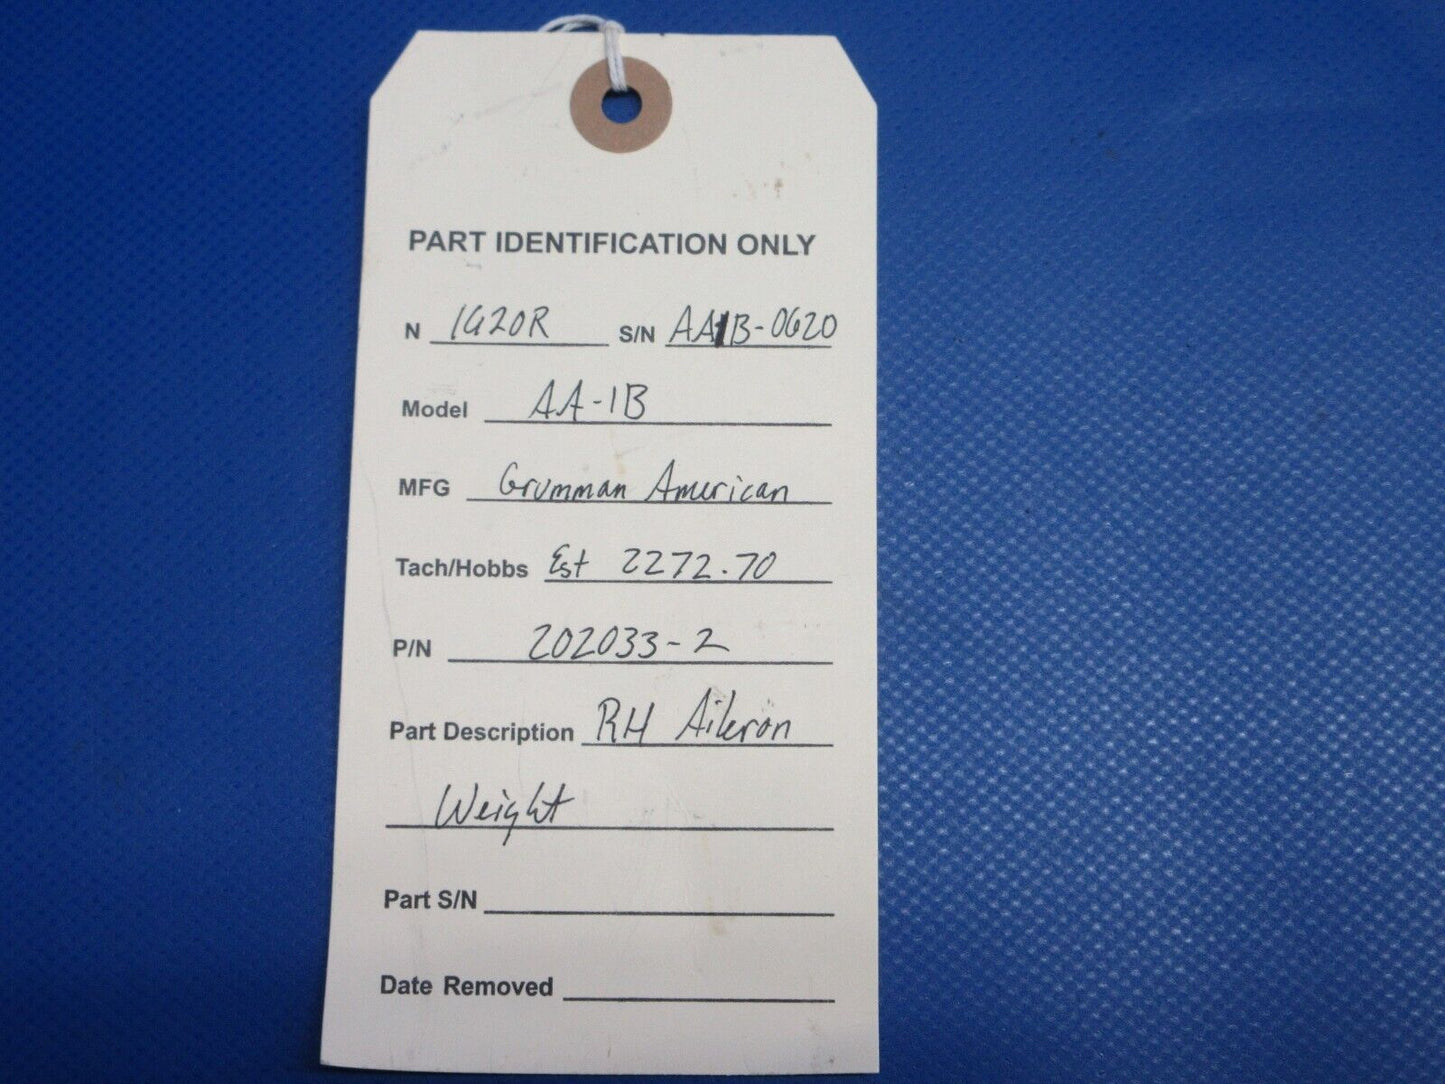 PART IDENTIFICATION ONLY
N 1620R S/N AA1B-0620
Model AA-1B
MFG Grumman American
Tach/Hobbs Est 2272.70
P/N 202033-2
Part Description RH Aileron
Weight
Part S/N
Date Removed